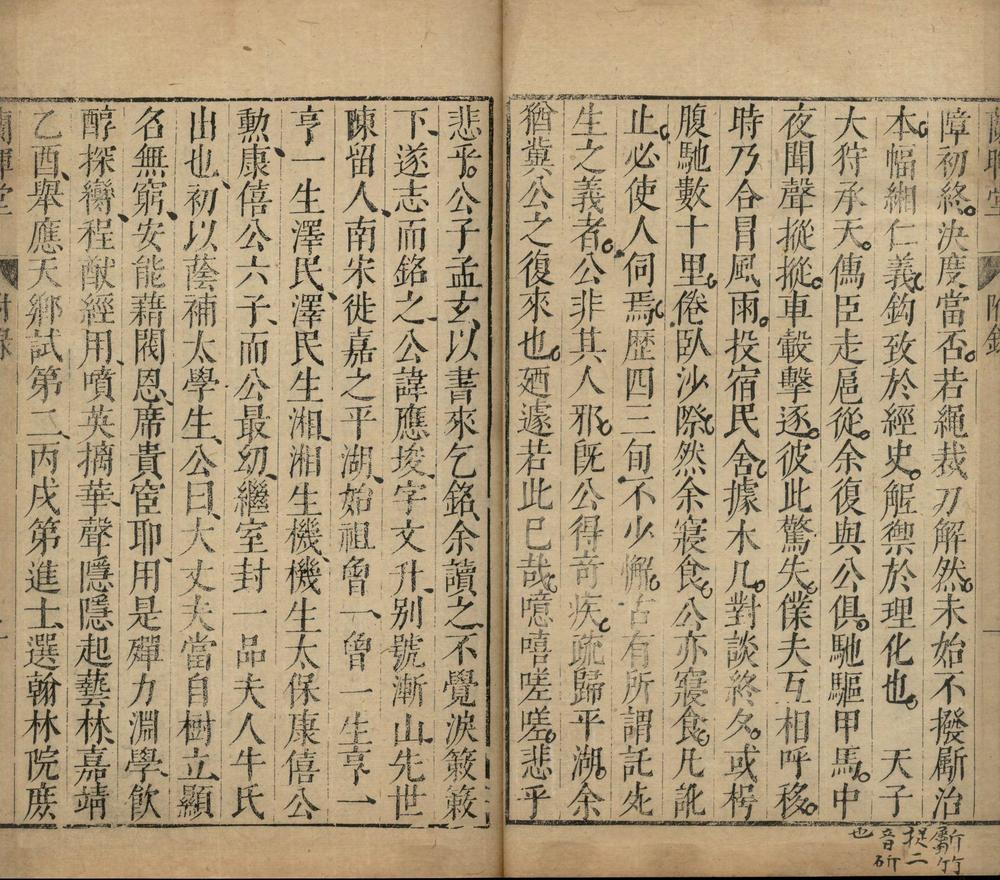 障初終決度當否若繩裁刀解然未始不撥斸治
本幅緗仁義鈎致於經史觝禦於理化也　天子
大狩承天傅臣走扈從余復與公俱馳驅甲馬中
夜聞聲摐摐車轂擊逐彼此驚失僕夫互相呼移
時乃合冒風雨投宿民舍據木几對談終夕或枵
腹馳數十里倦臥沙際然余寢食公亦寢食凡訛
止必使人伺焉歷四三旬不少懈古有所謂託死
生之義者公非其人邪旣公得奇疾疏歸平湖余
猶冀公之復來也廼遽若此已哉噫嘻嗟嗟悲乎
悲乎公子孟玄以書來乞銘余讀之不覺淚簌簌
下遂志而銘之公諱應埈字文升別號漸山先世
陳留人南宋徙嘉之平湖始祖曾一曾一生亨一
亨一生澤民澤民生湘湘生機機生太保康僖公
勲康僖公六子而公最幼繼室封一品夫人牛氏
出也初以蔭補太學生公曰大丈夫當自樹立顯
名無窮安能藉閥恩席貴宦耶用是殫力淵學飲
醇探臠程猷經用噴英摛華聲隱隱起藝林嘉靖
乙酉舉應天鄉試第二丙戌第進士選翰林院庶
蘭暉堂
附錄
一
蘭暉堂
附錄
斸斫竹
捉二
音斫
也